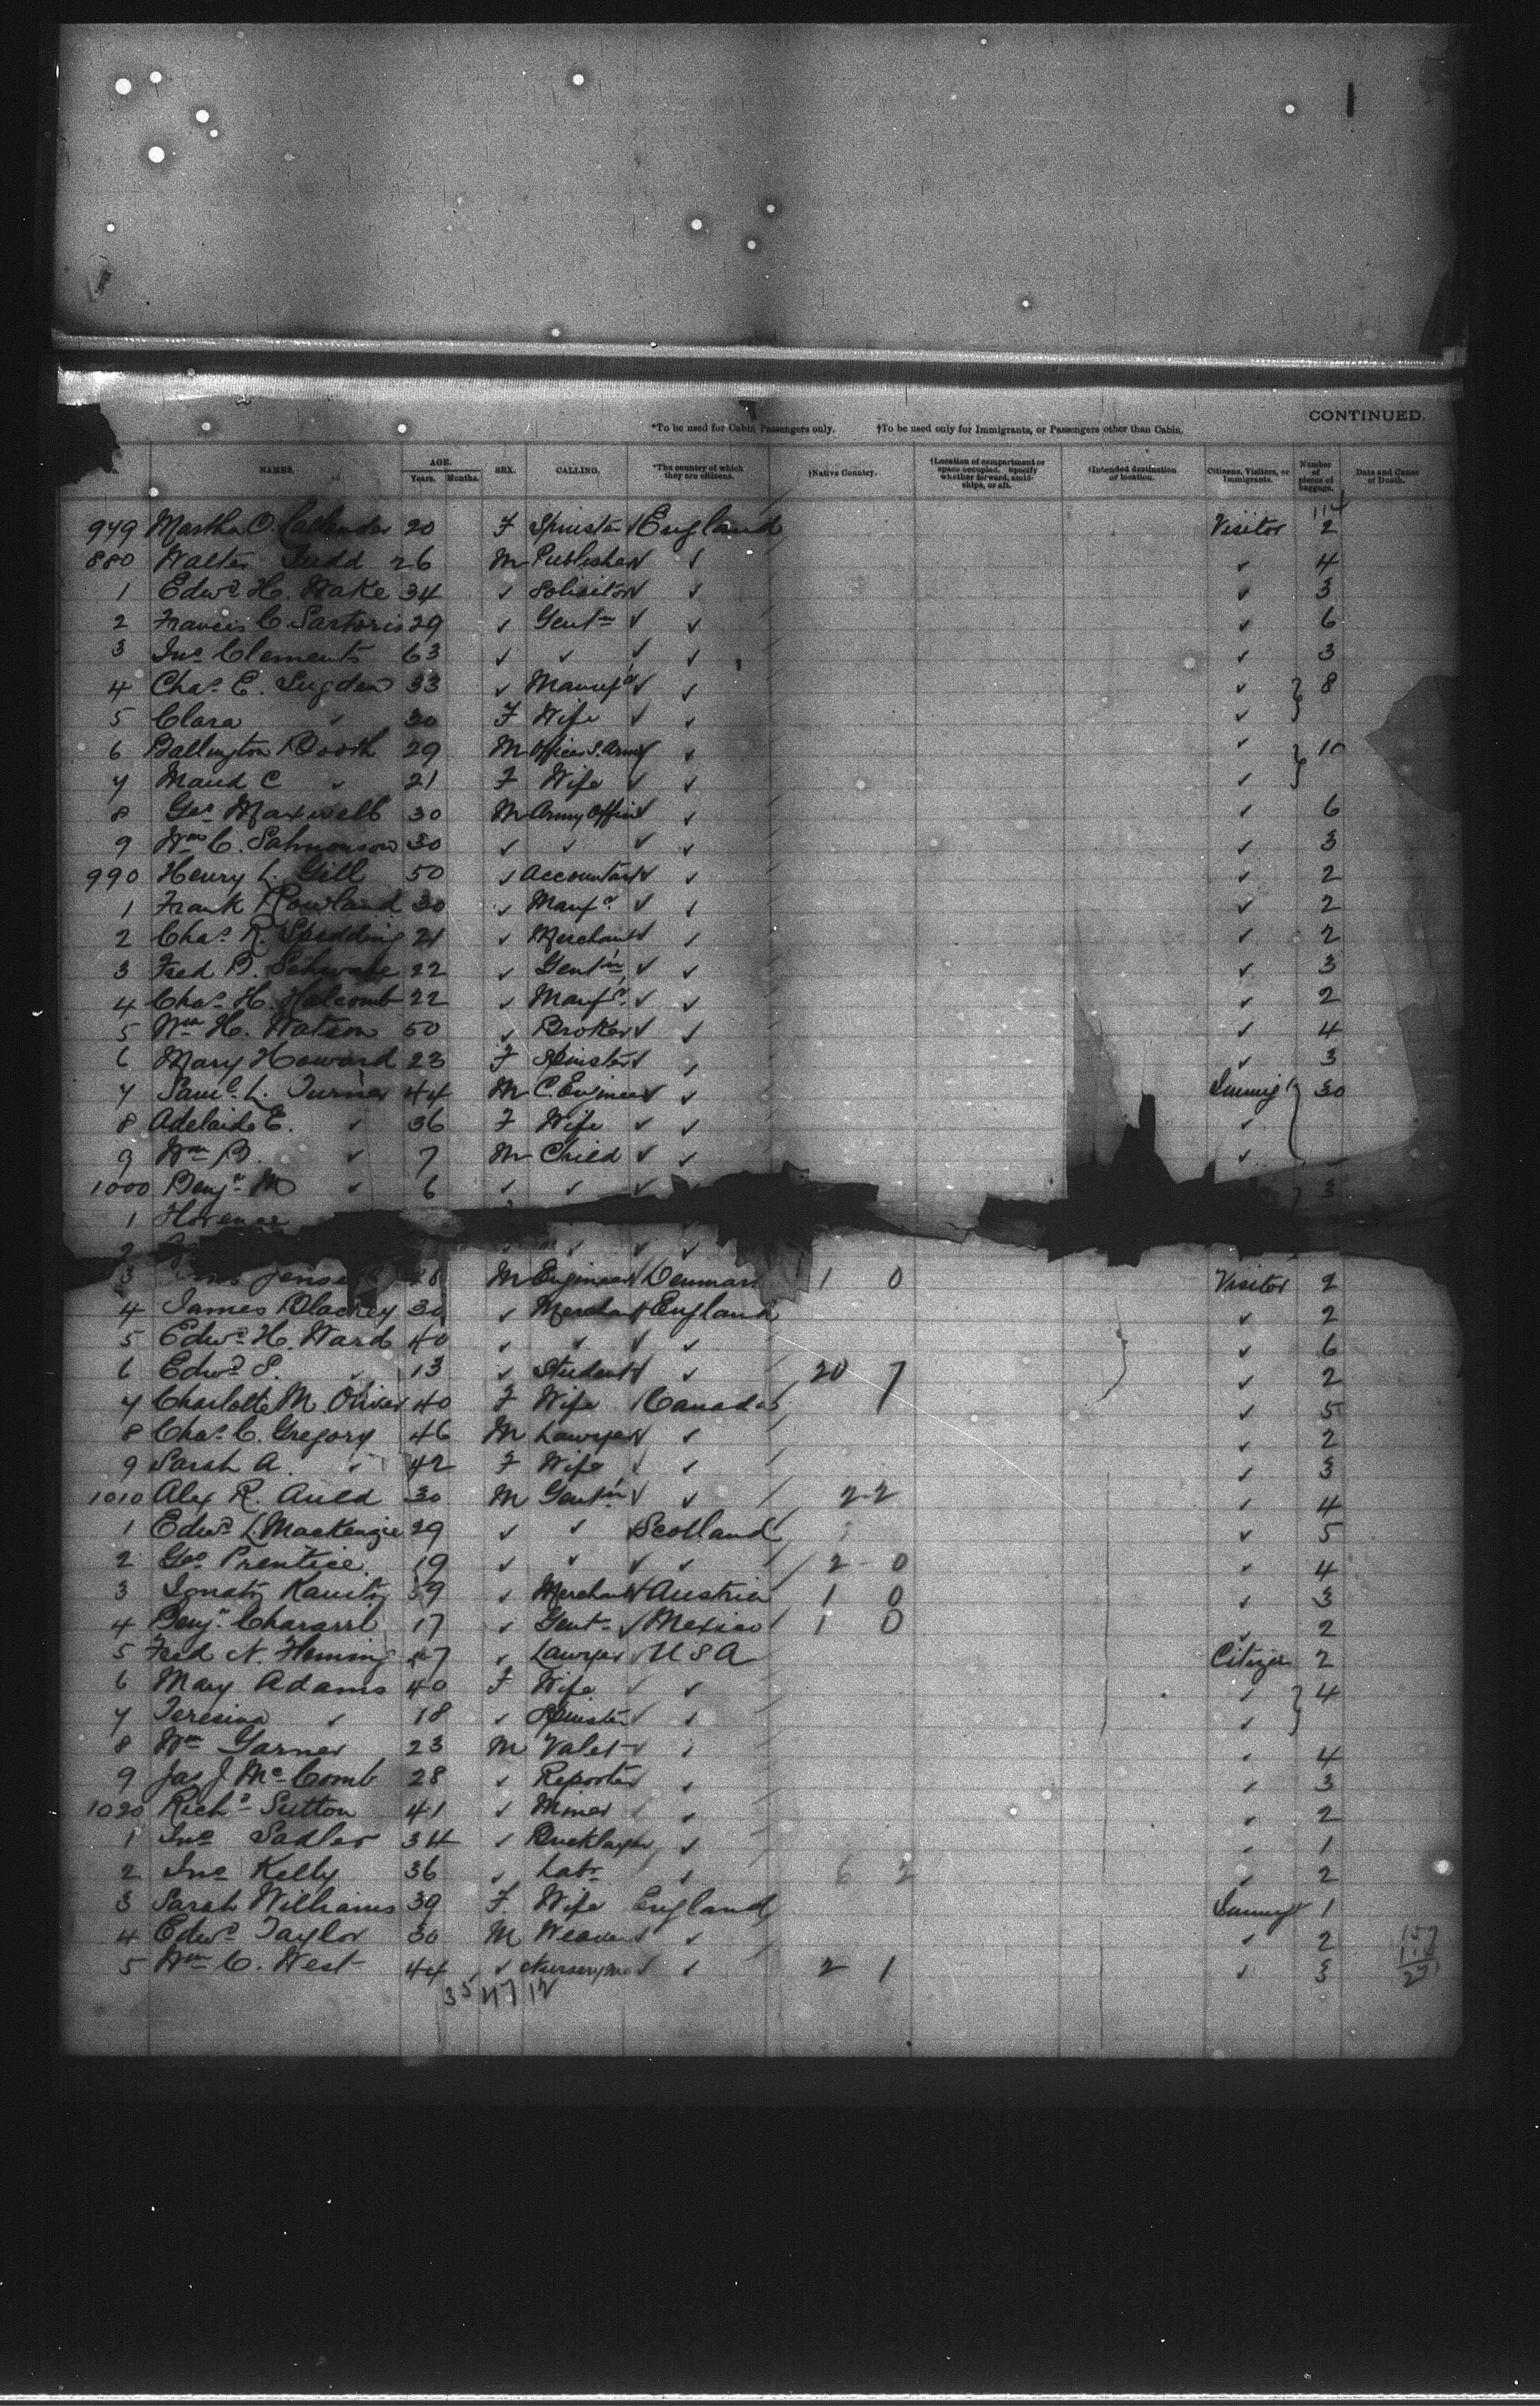 CONTINUED.
*To be used for Cabin Passengers only. †To be used only for Immigrants, or Passengers other than Cabin.
NAMES. AGE. Years. Months. SEX. CALLING. *The country of which they are citizens. †Native Country. †Location of compartment or space occupied. Specify whether forward, amidships, or aft. †Intended destination or location. Citizens, Visitors, or Immigrants. Number of pieces of baggage. Date and Cause of Death.
114
979 Martha O. Callender 20 F Spinster ✓ England Visitor 2
880 Walter Judd 26 M Publisher ✓ ✓ ✓ 4
1 Edwd. H. Wake 34 ✓ Solicitor ✓ ✓ ✓ 3
2 Francis C. Sartoris 29 ✓ Gentn ✓ ✓ ✓ 6
3 Jno. Clements 63 ✓ ✓ ✓ ✓ ✓ 3
4 Chas. E. Sugden 33 ✓ Manufr ✓ ✓ ✓ } 8
5 Clara ✓ 30 F Wife ✓ ✓ ✓
6 Ballington Booth 29 M Officer S. Army ✓ ✓ } 10
7 Maud C ✓ 21 F Wife ✓ ✓ ✓
8 Geo. Maxwell 30 M Army Officer ✓ ✓ 6
9 Wm C. Salmonson 30 ✓ ✓ ✓ ✓ ✓ 3
990 Henry L. Gill 50 ✓ Accountant ✓ ✓ ✓ 2
1 Frank Rowland 30 ✓ Manfr. ✓ ✓ ✓ 2
2 Chas. R. Spedding 21 ✓ Merchant ✓ ✓ 2
3 Fred B. Schwabe 22 ✓ Gentn ✓ ✓ ✓ 3
4 Chas. H. Holcomb 22 ✓ Manfr. ✓ ✓ ✓ 2
5 Wm H. Watson 50 ✓ Broker ✓ ✓ ✓ 4
6 Mary Howard 23 F Spinster ✓ ✓ 3
7 Saml. L. Turner 44 M C. Engineer ✓ ✓ Immigt } 30
8 Adelaide E. ✓ 36 F Wife ✓ ✓ ✓
9 Wm B. ✓ 7 M Child ✓ ✓ ✓
1000 Benjn. M ✓ 6 ✓ ✓ ✓ } 3
1 Florence
2 ✓ ✓ ✓
3 Jense 28 M Engineer ✓ Denmark 1 0 Visitor 2
4 James Blackey 30 ✓ Merchant ✓ England ✓ 2
5 Edwd. H. Ward 40 ✓ ✓ ✓ ✓ ✓ 6
6 Edwd S. ✓ 13 ✓ Student ✓ ✓ 20 7 ✓ 2
7 Charlotte M. Oliver 40 F Wife Canada ✓ 5
8 Chas. C. Gregory 46 M Lawyer ✓ ✓ ✓ 2
9 Sarah A. ✓ 42 F Wife ✓ ✓ ✓ 3
1010 Alex R. Auld 30 M Gentn ✓ ✓ 2-2 ✓ 4
1 Edwd. L. Mackenzie 29 ✓ ✓ Scotland ✓ 5
2 Geo Prentice 19 ✓ ✓ ✓ ✓ 2-0 ✓ 4
3 Ignatz 59 ✓ Merchant ✓ Austria 1 0 ✓ 3
4 Benjn. 17 ✓ Gent ✓ Mexico 1 0 ✓ 2
5 Fred N. Fleming 47 ✓ Lawyer ✓ U S A Citizen 2
6 Mary Adams 40 F Wife ✓ ✓ ✓ } 4
7 Teresina ✓ 18 ✓ Spinster ✓ ✓ ✓
8 Wm Garner 23 M Valet ✓ ✓ ✓ 4
9 Jas J. McComb 28 ✓ Reporter ✓ ✓ ✓ 3
1020 Richd Sutton 41 ✓ Miner ✓ ✓ ✓ 2
1 Jno Sadler 34 ✓ Bricklayer ✓ ✓ 1
2 Jno Kelly 36 ✓ Labr ✓ 6 2 ✓ 2
3 Sarah Williams 39 F Wife England Immigt 1
4 Edwd Taylor 30 M Weaver ✓ ✓ ✓ 2
5 Wm C. West 44 ✓ Nurseryman ✓ ✓ 2 1 ✓ 3
35 47 12